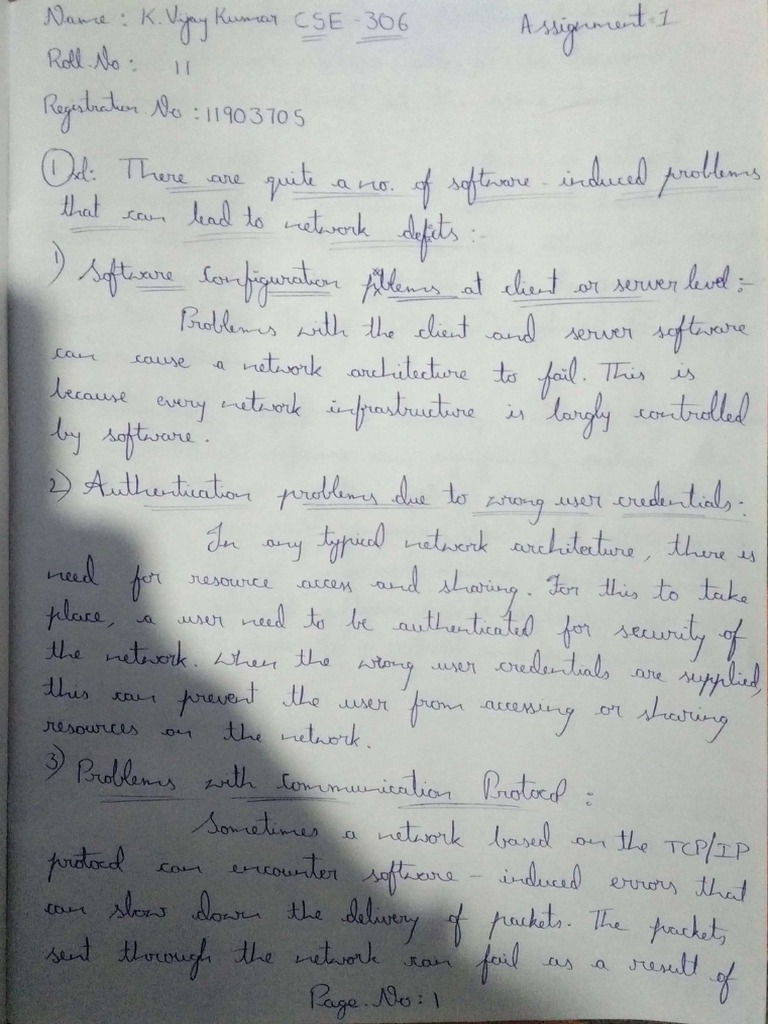 Name : K. Vijay Kumar CSE - 306 Assignment-1
Roll.No : 11
Registration No : 11903705
1)Sol: There are quite a no. of software-induced problems
that can lead to network defits :-
1) Software Configuration pblems at client or server level :-
Problems with the client and server software
can cause a network architecture to fail. This is
because every network infrastructure is largly controlled
by software.
2) Authentication problems due to wrong user credentials :
In any typical network architecture, there is
need for resource access and sharing. For this to take
place, a user need to be authenticated for security of
the network. When the wrong user credentials are supplied,
this can prevent the user from accessing or sharing
resources on the network.
3) Problems with Communication Protocol :
Sometimes a network based on the TCP/IP
protocol can encounter software - induced errors that
can slow down the delivery of packets. The packets
sent through the network can fail as a result of
Page.No : 1